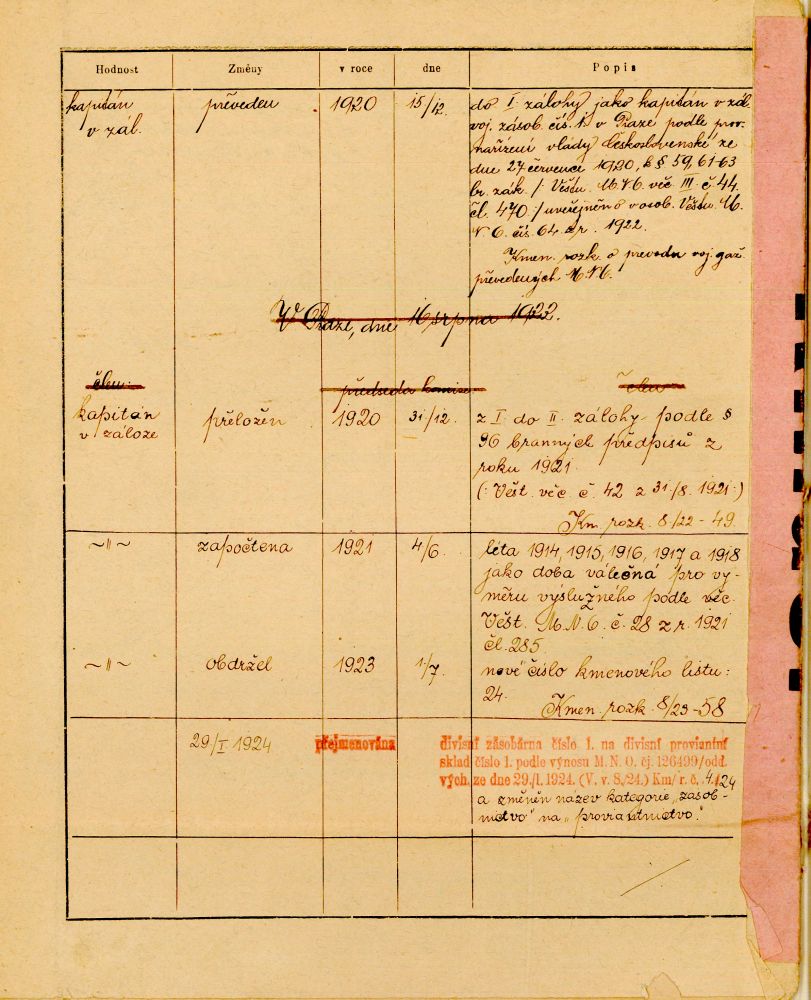 Hodnost Změny v roce dne Popis
kapitán převeden 1920 15/12. do I. zálohy jako kapitán v zál.
v zál. voj. zásob. čís. 1. v Praze podle prov.
nařízení vlády Československé ze
dne 27 července 1920, k § 59, 61-63
br. zák. /: Věstn. M.N.O. věc. III. č. 44.
čl. 470 :/ uveřejněno v osob. Věstn. M.
N. O. čís. 64 z r. 1922.
Kmen. rozk. o převodu voj. gaž.
převedených M.N.O.
V Praze, dne 16 srpna 1922.
člen: předseda komise člen
kapitán přeložen 1920 31/12. z I. do II. zálohy podle §
v záloze 96 branných předpisů z
roku 1921.
(: Věst. věc. č. 42 z 31./8. 1921 :)
Km. rozk. 8/22 - 49.
~ " ~ započtena 1921 4/6. léta 1914, 1915, 1916, 1917 a 1918
jako doba válečná pro vý-
měru výslužného podle věc.
Věst. M.N.O. č. 28 z r. 1921
čl. 285.
~ " ~ obdržel 1923 1./7. nové číslo kmenového listu:
24.
Kmen. rozk. 8/23 - 58
29/I 1924 přejmenována divisní zásobárna číslo 1. na divisní proviantní
sklad číslo 1. podle výnosu M. N. O. čj. 126499/odd.
vých. ze dne 29./I. 1924. (V. v. 8./24.) Km/ r. č. 4/24
a změněn název kategorie „zásob-
nictvo" na „proviantnictvo".